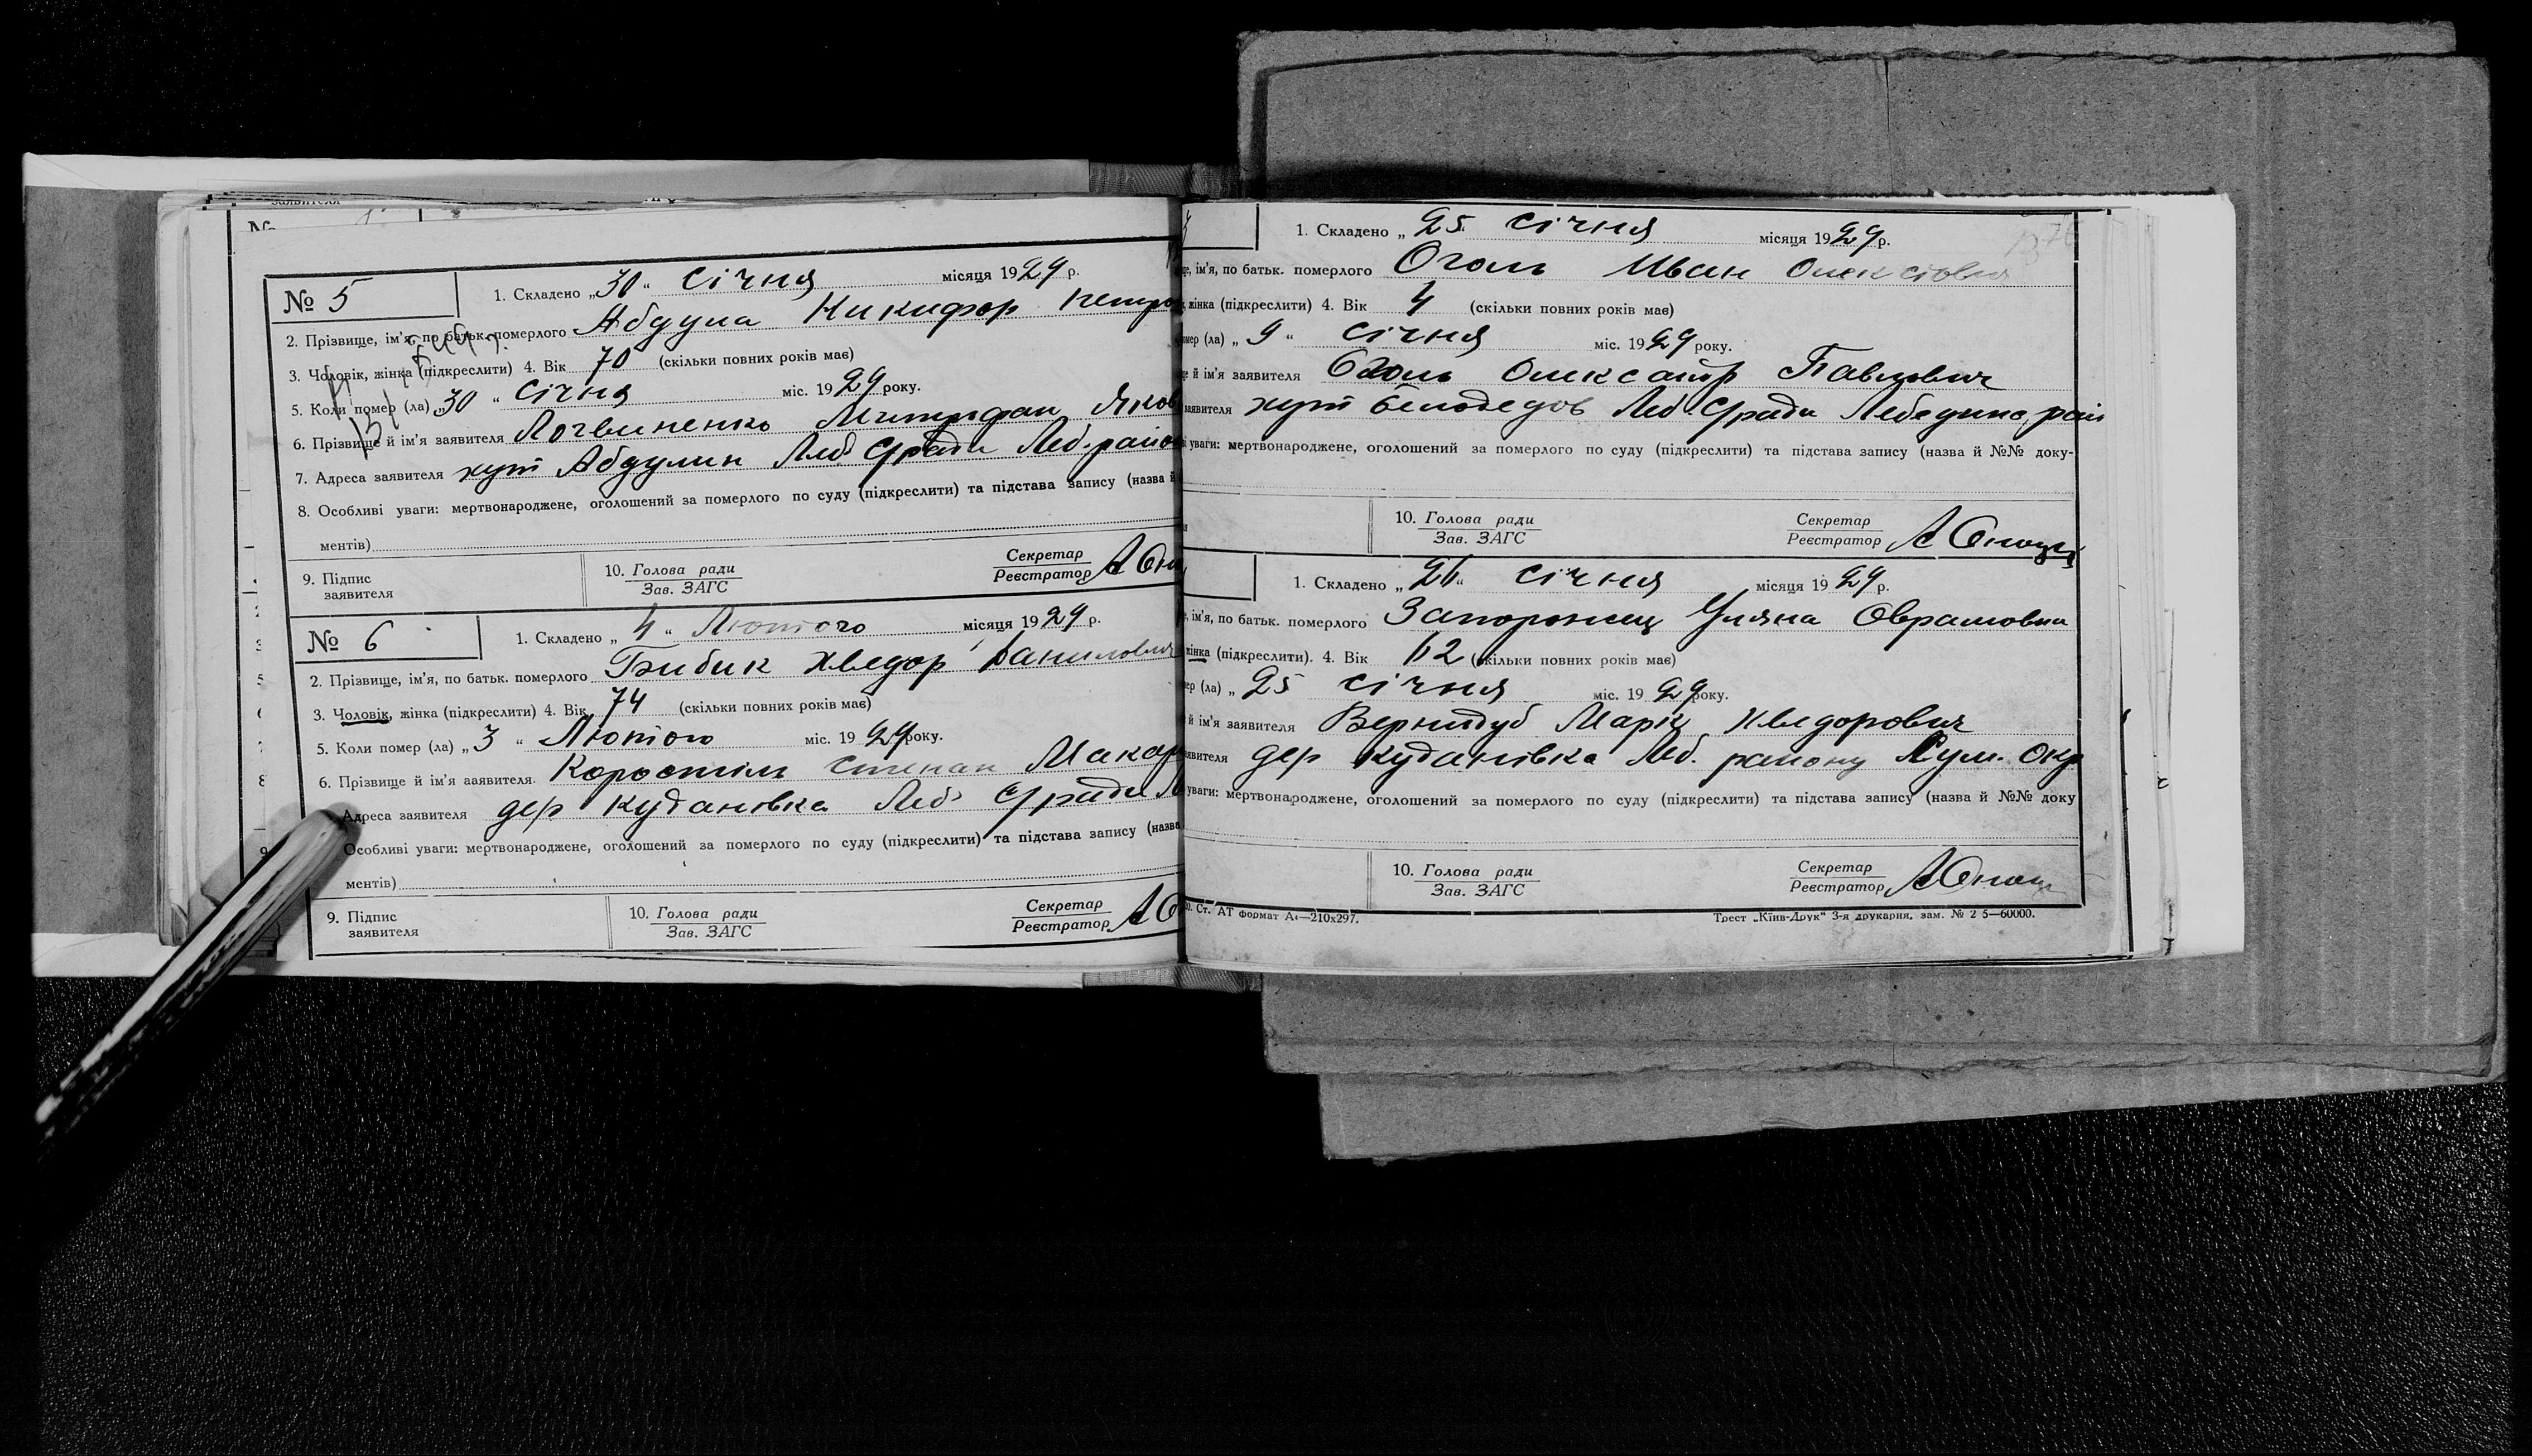 № 5
1. Складено „30“ Січня місяця 1929 р.
2. Прізвище, ім'я, по батьк. померлого Абдула Никифор Петро
3. Чоловік, жінка (підкреслити) 4. Вік 70 (скільки повних років має)
5. Коли помер (ла) „30“ Січня міс. 1929 року.
6. Прізвище й ім'я заявителя Логвиненко Митрофан Яков
7. Адреса заявителя хут Абдулин Леб Сради Леб. район
8. Особливі уваги: мертвонароджене, оголошений за померлого по суду (підкреслити) та підстава запису (назва й
ментів)
9. Підпис заявителя
10. Голова ради Зав. ЗАГС
Секретар Реєстратор
№ 6
1. Складено „4“ Лютого місяця 1929 р.
2. Прізвище, ім'я, по батьк. померлого Бибик Хведор Данилович
3. Чоловік, жінка (підкреслити) 4. Вік 74 (скільки повних років має)
5. Коли помер (ла) „3“ Лютого міс. 1929 року.
6. Прізвище й ім'я заявителя Коростіль Степан Макар
Адреса заявителя дер Кудановка Леб Сради
Особливі уваги: мертвонароджене, оголошений за померлого по суду (підкреслити) та підстава запису (назва
ментів)
9. Підпис заявителя
10. Голова ради Зав. ЗАГС
Секретар Реєстратор
1. Складено „25 Січня місяця 1929 р.
ім'я, по батьк. померлого Оголь Иван Олексіович
жінка (підкреслити) 4. Вік 4 (скільки повних років має)
(ла) „9“ Січня міс. 1929 року.
й ім'я заявителя Оголь Олександр Павлович
заявителя хут Белодедов Леб Сради Лебединс. рай
уваги: мертвонароджене, оголошений за померлого по суду (підкреслити) та підстава запису (назва й №№ доку-
10. Голова ради Зав. ЗАГС
Секретар Реєстратор
1. Складено „26“ Січня місяця 1929 р.
ім'я, по батьк. померлого Запорожец Уляна Оврамовна
жінка (підкреслити). 4. Вік 62 (скільки повних років має)
(ла) „25 Січня міс. 1929 року.
й ім'я заявителя Вернидуб Марк Хведорович
дер Кудановка Леб. району Сум. Окр
уваги: мертвонароджене, оголошений за померлого по суду (підкреслити) та підстава запису (назва й №№ доку
10. Голова ради Зав. ЗАГС
Секретар Реєстратор
Ст. АТ Формат А4—210х297.
Трест „Київ-Друк“ 3-я друкарня. зам. № 2 5—60000.